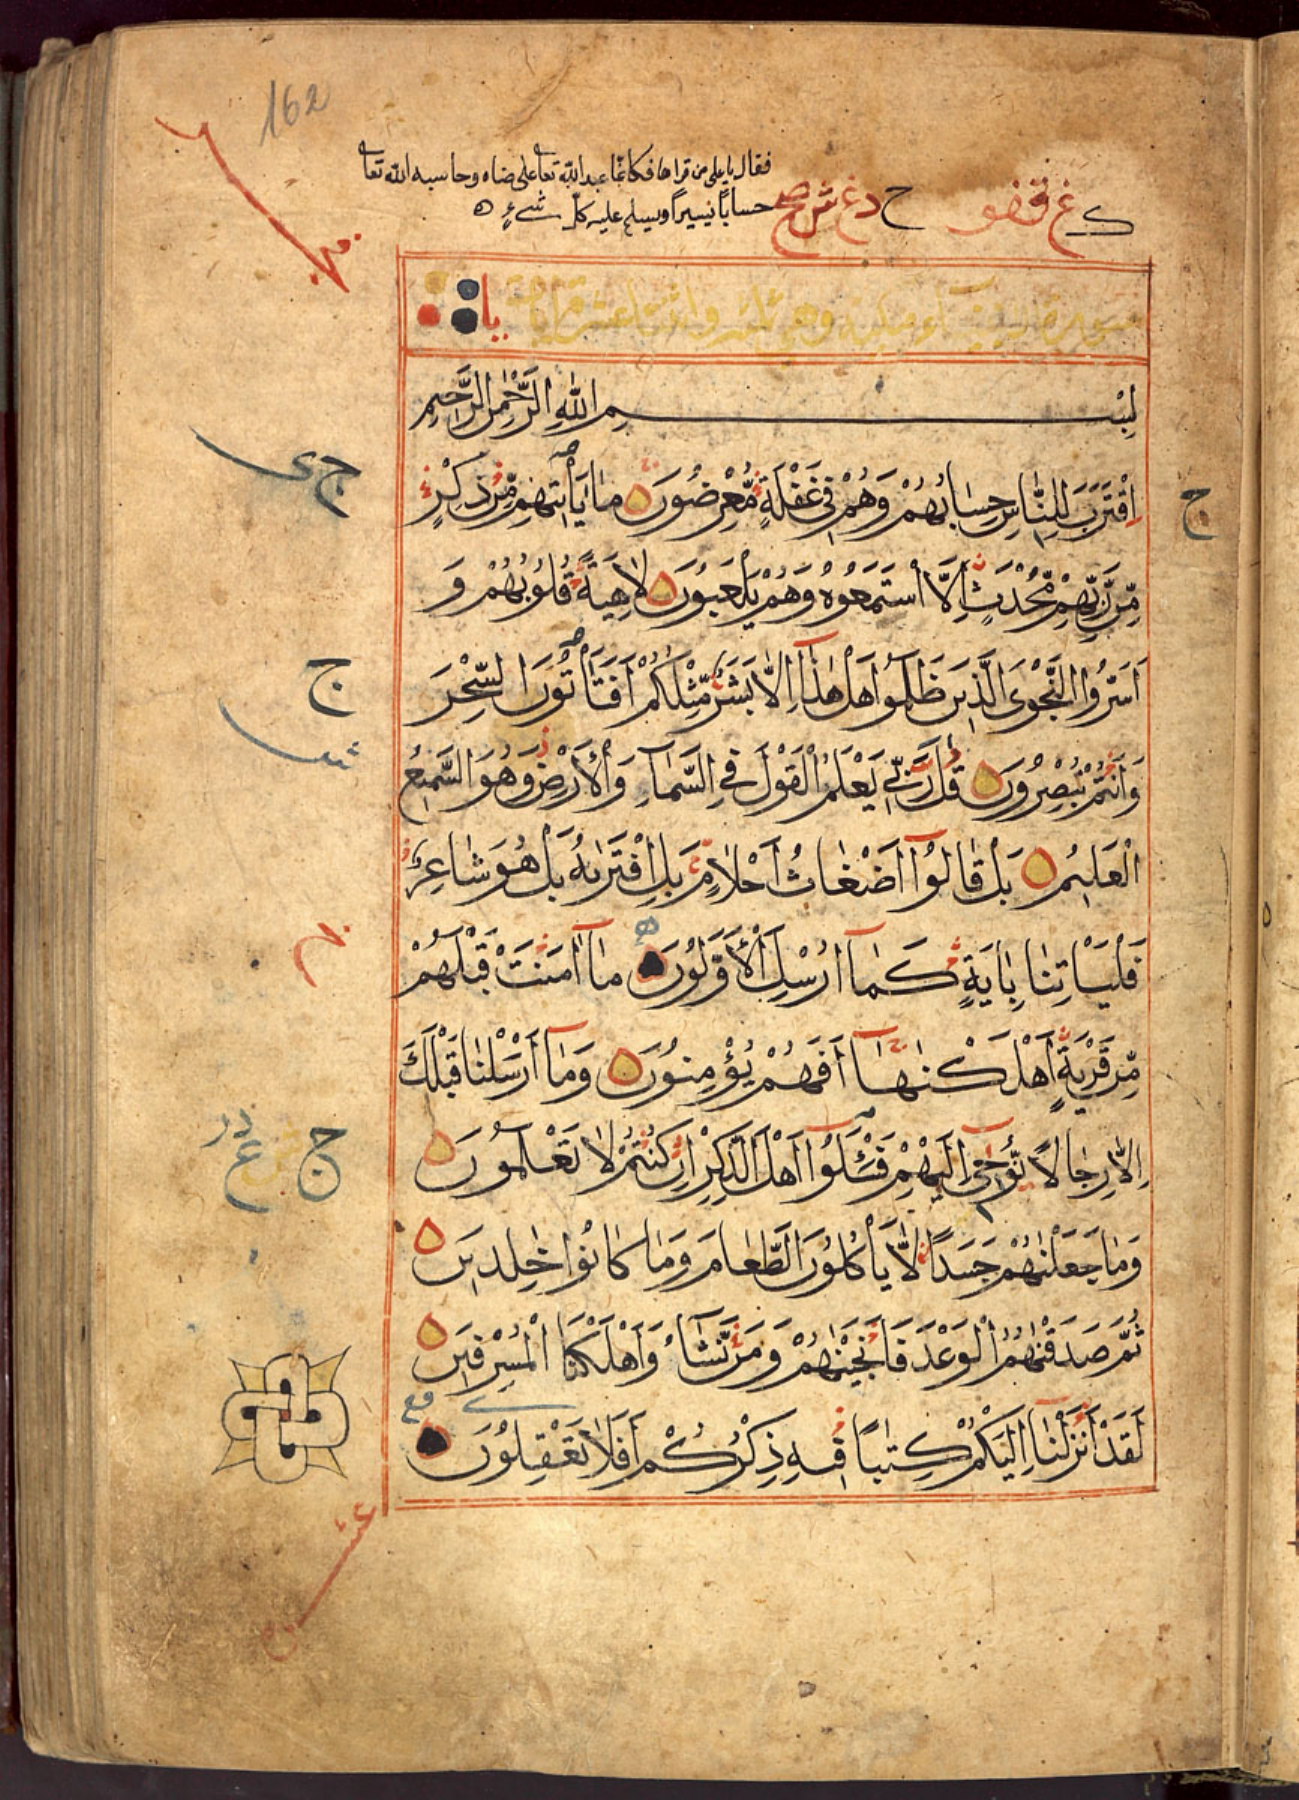 162
فقال يا على من قراها فكانما عبد الله تعالى على رضاه وحاسبه الله تعالى
حسابًا يسيرًا ويسلم عليه كل شىء
سورة الانبياء مكيه وهى مائه واثنتا عشرة اية
بِسْمِ اللّٰهِ الرَّحْمٰنِ الرَّحِيمِ
اِقْتَرَبَ لِلنَّاسِ حِسَابُهُمْ وَهُمْ فِي غَفْلَةٍ مُّعْرِضُونَ مَا يَأْتِيهِمْ مِّنْ ذِكْرٍ
مِّنْ رَّبِّهِمْ مُّحْدَثٍ اِلَّا اسْتَمَعُوهُ وَهُمْ يَلْعَبُونَ لَاهِيَةً قُلُوبُهُمْ وَ
اَسَرُّوا النَّجْوَى الَّذِينَ ظَلَمُوا هَلْ هٰذَا اِلَّا بَشَرٌ مِّثْلُكُمْ اَفَتَأْتُونَ السِّحْرَ
وَاَنْتُمْ تُبْصِرُونَ قُلْ رَّبِّي يَعْلَمُ الْقَوْلَ فِي السَّمَاءِ وَالْاَرْضِ وَهُوَ السَّمِيعُ
الْعَلِيمُ بَلْ قَالُوا اَضْغَاثُ اَحْلَامٍ بَلِ افْتَرٰيهُ بَلْ هُوَ شَاعِرٌ
فَلْيَأْتِنَا بِاٰيَةٍ كَمَا اُرْسِلَ الْاَوَّلُونَ مَا اٰمَنَتْ قَبْلَهُمْ
مِّنْ قَرْيَةٍ اَهْلَكْنٰهَا اَفَهُمْ يُؤْمِنُونَ وَمَا اَرْسَلْنَا قَبْلَكَ
اِلَّا رِجَالًا نُّوحِي اِلَيْهِمْ فَسْـَٔلُوا اَهْلَ الذِّكْرِ اِنْ كُنْتُمْ لَا تَعْلَمُونَ
وَمَا جَعَلْنٰهُمْ جَسَدًا لَّا يَأْكُلُونَ الطَّعَامَ وَمَا كَانُوا خٰلِدِينَ
ثُمَّ صَدَقْنٰهُمُ الْوَعْدَ فَاَنْجَيْنٰهُمْ وَمَنْ نَّشَاءُ وَاَهْلَكْنَا الْمُسْرِفِينَ
لَقَدْ اَنْزَلْنَا اِلَيْكُمْ كِتٰبًا فِيهِ ذِكْرُكُمْ اَفَلَا تَعْقِلُونَ